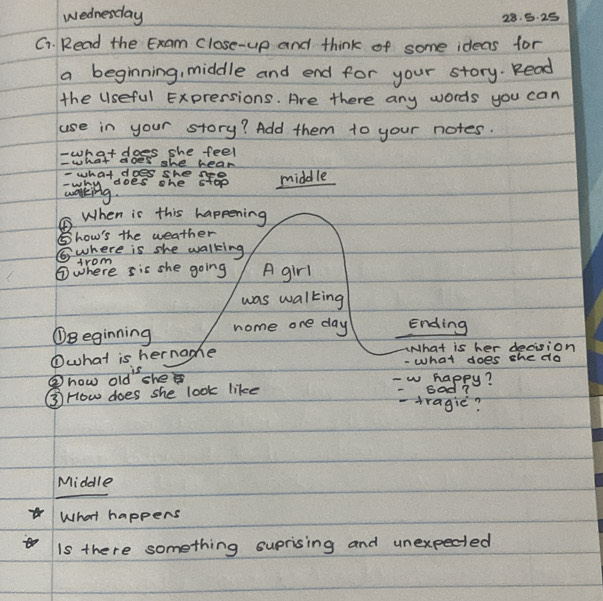 Wednesday
28.5.25
G. Read the Exam Close-up and think of some ideas for
a beginning, middle and end for your story. Read
the Useful Expressions. Are there any words you can
use in your story? Add them to your notes.
- what does she feel
- what does she hear
- what does she see
- why does she stop
walking.
middle
④ When is this happening
⑤ how's the weather
⑥ where is she walking
from
⑦ where is she going
A girl
was walking
home one day
① Beginning
① what is her name
② how old is she
③ How does she look like
Ending
- What is her decision
- what does she do
- happy?
- sad?
- tragic?
Middle
☆ What happens
☆ Is there something suprising and unexpected